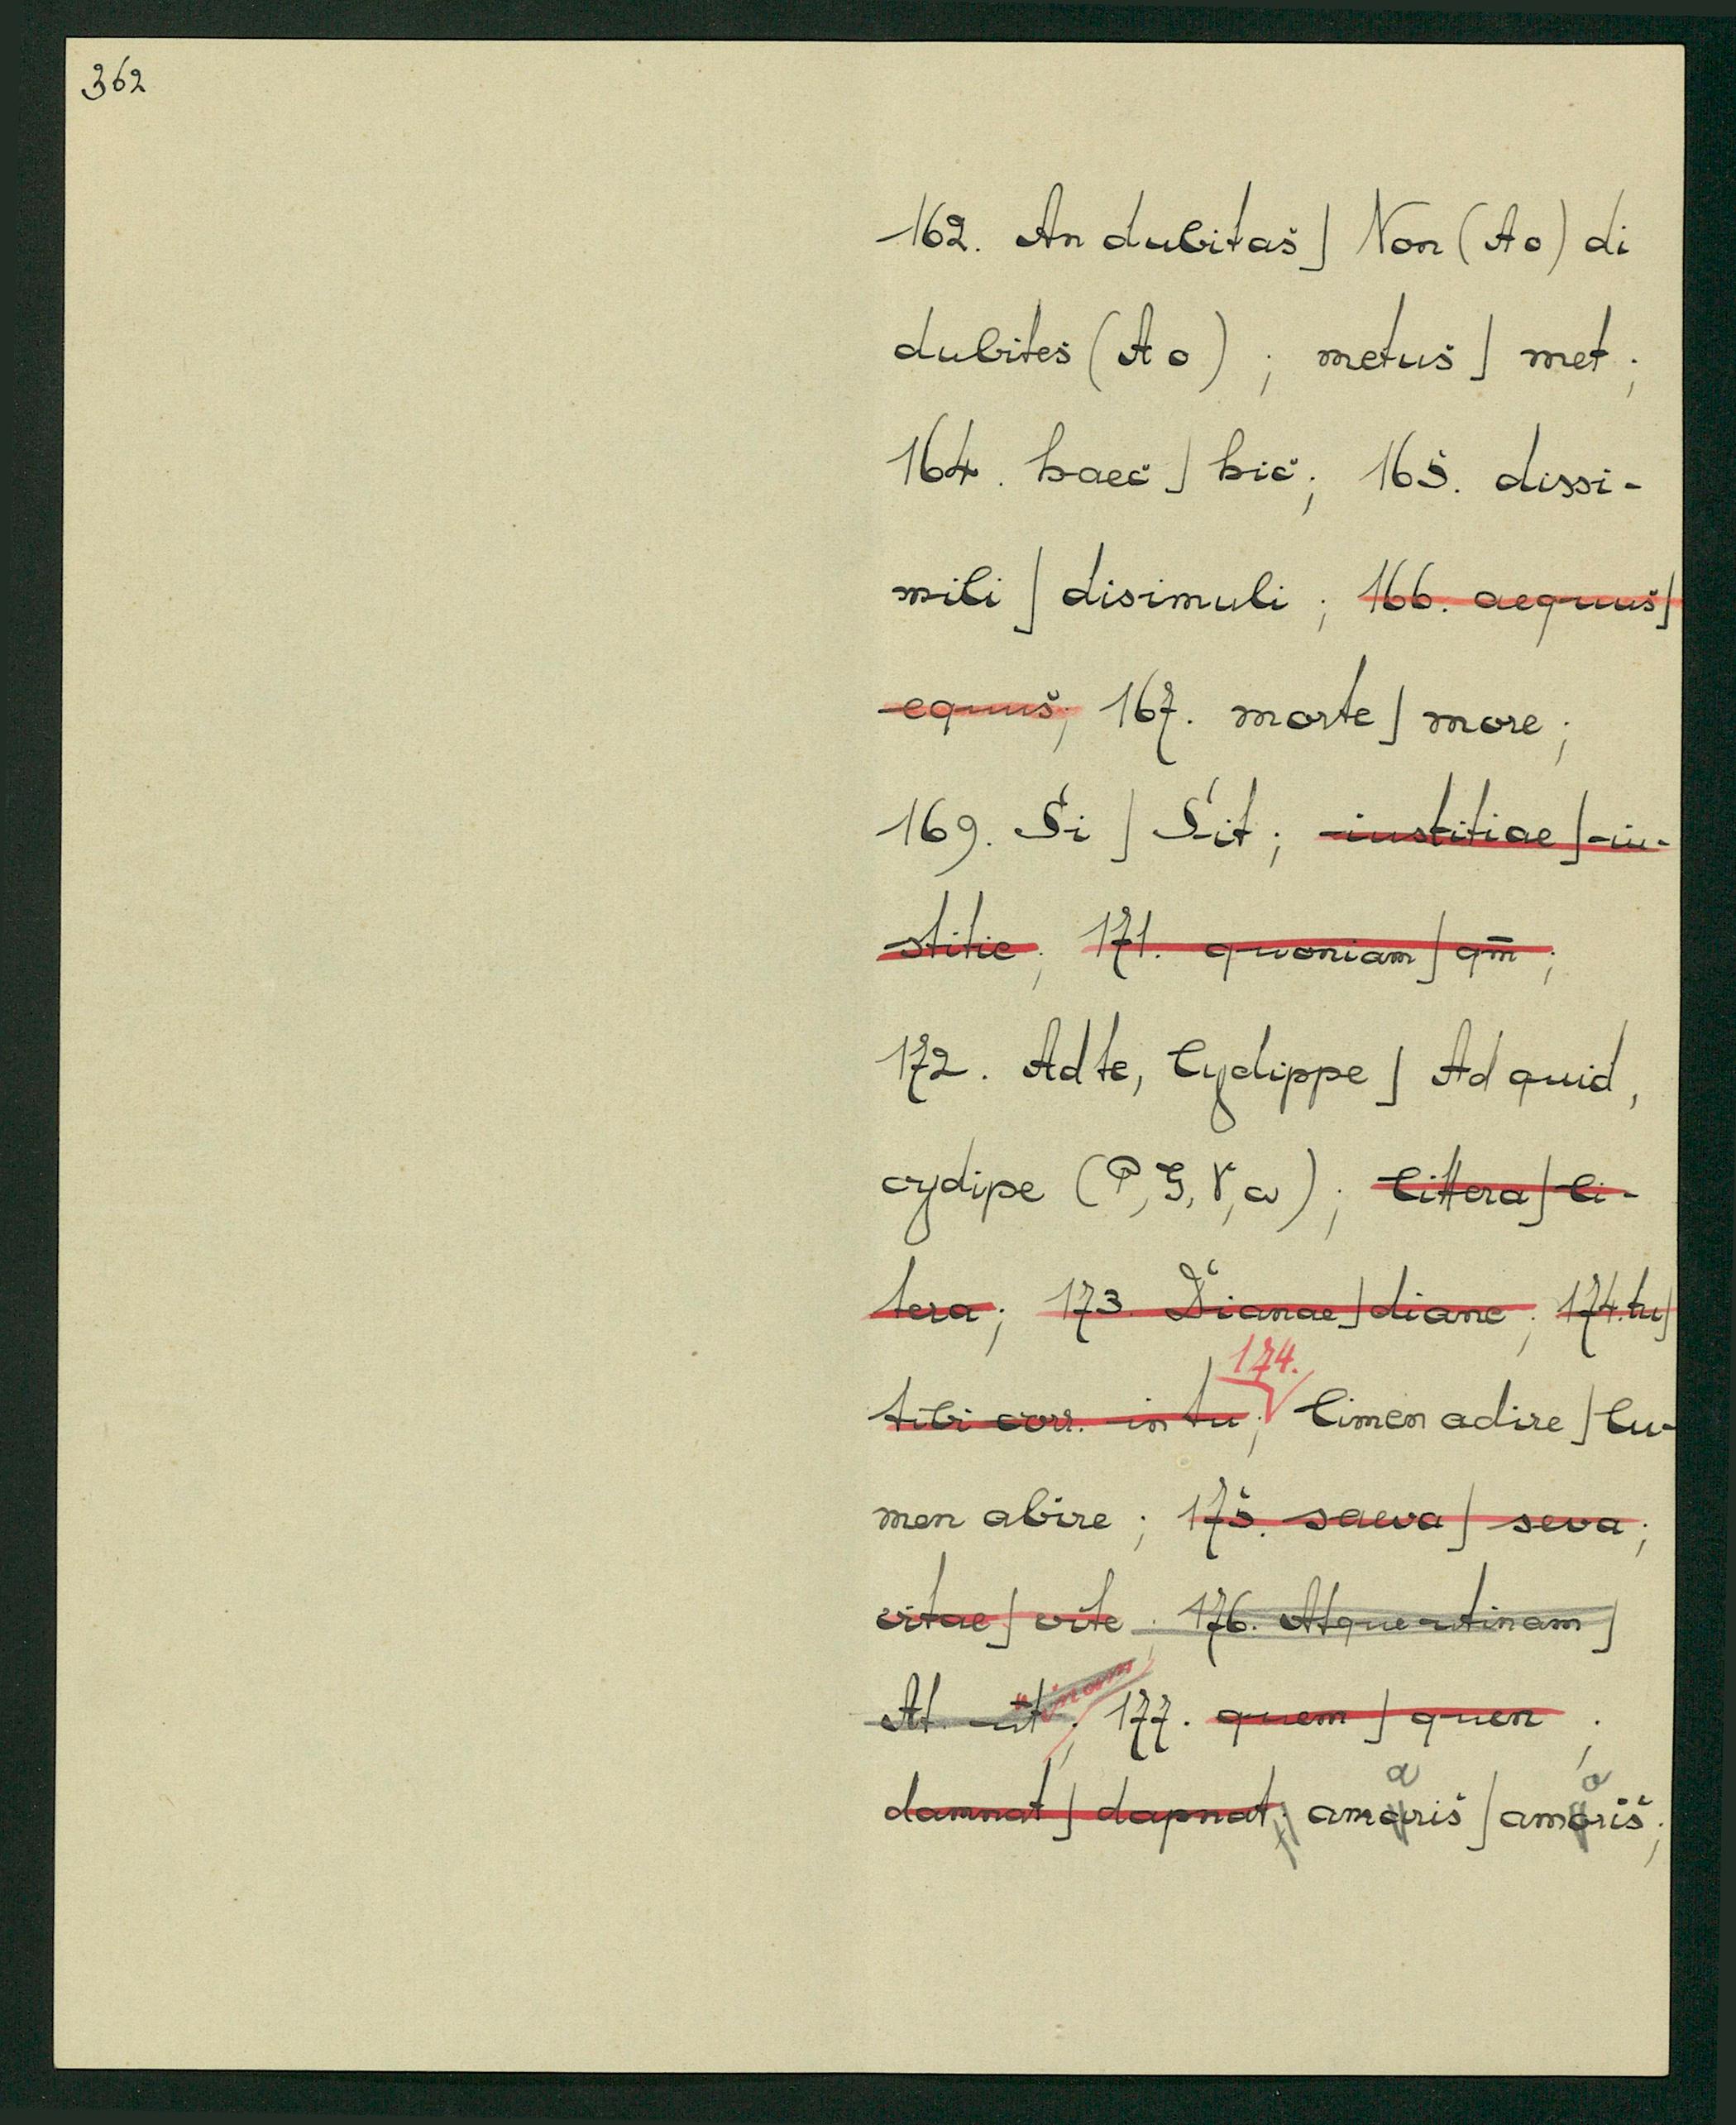 362
162. An dubitas] Non (Ao) di
dubites (Ao) ; metus] met ;
164. haec] hic ; 165. dissi-
mili] disimuli ; 166. aequus]
equus ; 167. morte] more ;
169. Si] Sit ; iustitiae] iu-
stitie ; 171. quoniam] qm̄ ;
172. Ad te, Cydippe] Ad quid,
cydipe (P, G, V, ω) ; littera] li-
tera ; 173. Dianae] diane ; 174. tu]
174.
tibi corr. in tu ; limen adire] lu-
men abire ; 175. saeva] seva ;
vitae] vite ; 176. Atque utinam]
At. ut inam ; 177. quem] quen ;
damnat] dapnat ; amaris] amoris ;